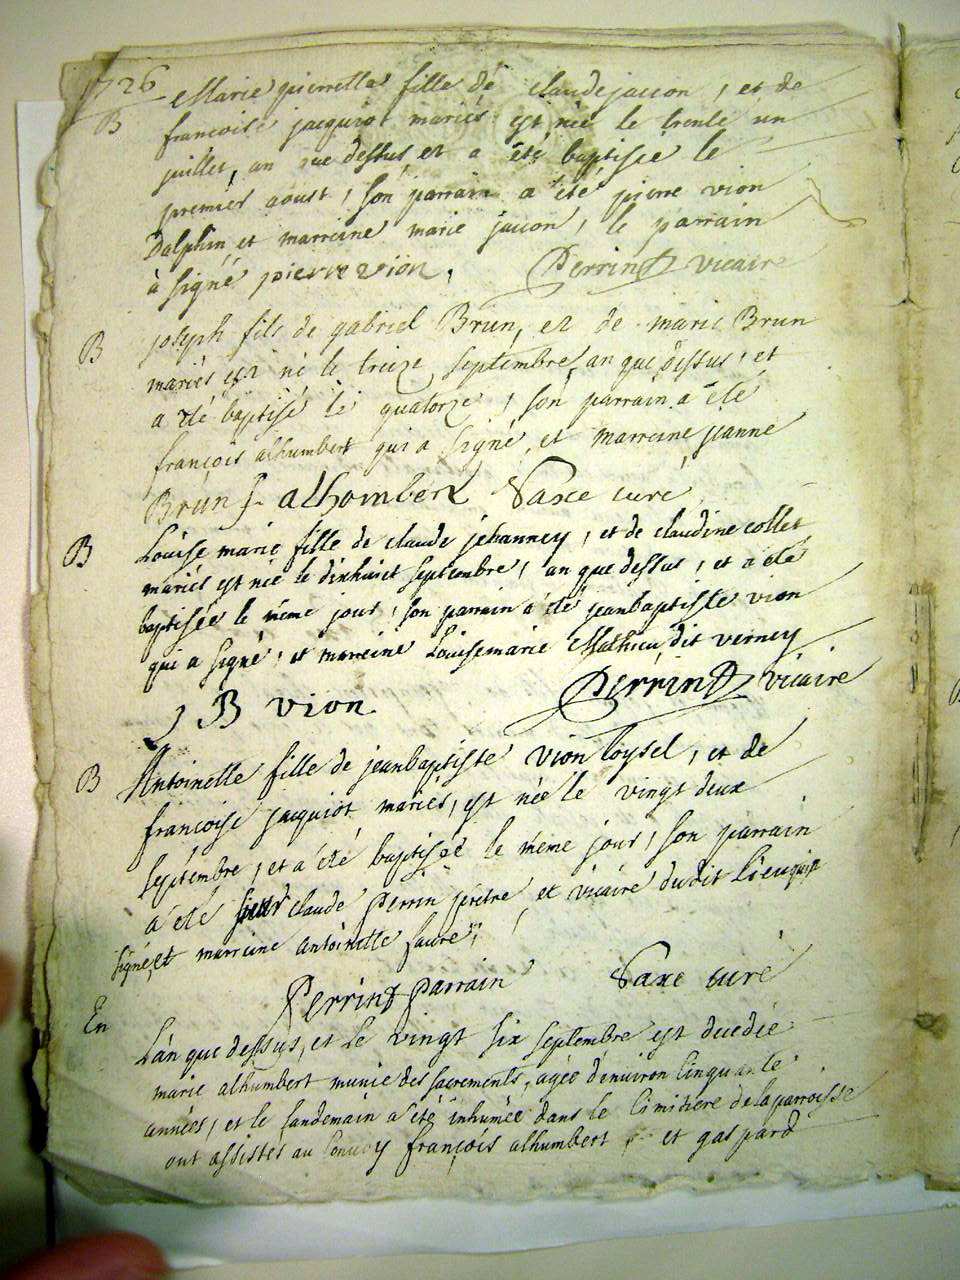 1726
Marie pierrette fille de claude jacson, et de
B
francoise jacquiot mariés est née le trente un
juillet, an que dessus et a été baptisée le
premier aoust, son parrain a été pierre vion
Dalphin et marreine marie jacson, le parrain
à signé pierre vion. Perrin vicaire
B
joseph fils de gabriel Brun, et de marie Brun
mariés est né le treize septembre, an que dessus, et
a été baptisé le quatorze, son parrain a été
françois alhumbert qui a signé, et marreine jeanne
Brun f. alhombert Saxe curé
B
Louise marie fille de claude jehanney, et de claudine collet
mariés est née le dixhuict septembre, an que dessus, et a été
baptisée le même jour, son parrain a été jeanbaptiste vion
qui a signé, et marreine Louisemarie Mathieu dit verney
J B vion Perrin vicaire
B
Antoinette fille de jeanbaptiste vion loysel, et de
françoise jacquiot mariés, est née le vingt deux
septembre, et a été baptisée le même jour, son parrain
a été sieur claude perrin prêtre et vicaire dudit lieu qui a
signé, et marreine antoinette faure,
Perrin parrain Saxe curé
En
L'an que dessus, et le vingt six septembre est decedée
marie alhumbert munie des sacrements, agée d'environ cinquante
années, et le landemain a été inhumée dans le cimitiere de la parroisse
ont assistés au convoy françois alhumbert et gaspard